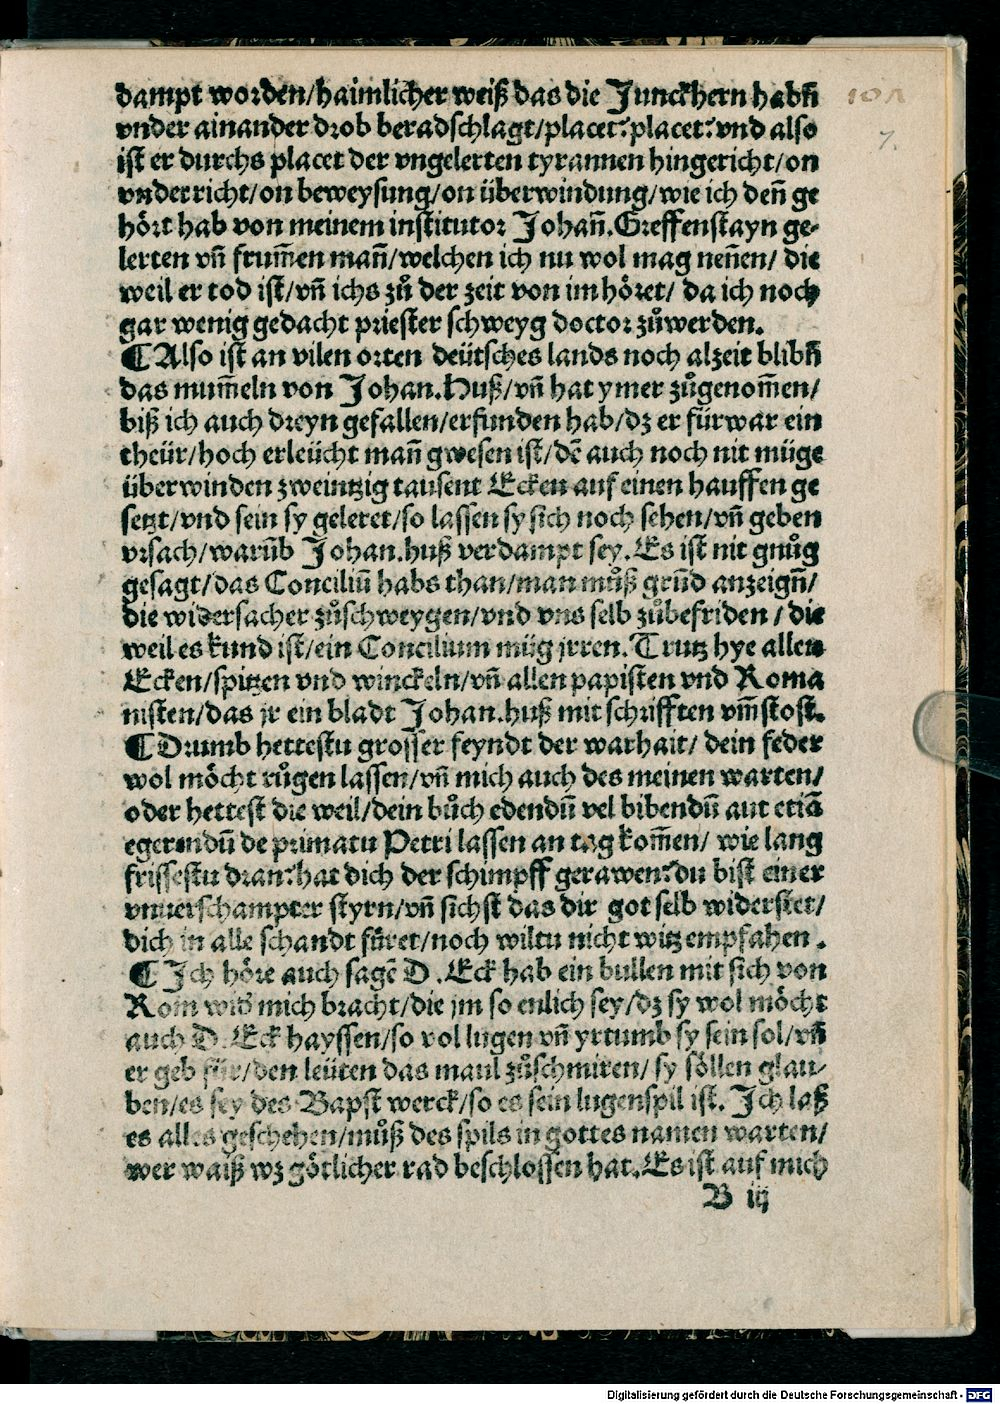 dampt worden/haimlicher weiß das die Junckhern habñ
vnder ainander drob beradschlagt/placet?placet?vnd also
ist er durchs placet der vngelerten tyrannen hingericht/on
vnderricht/on beweysung/on überwindung/wie ich deñ ge
hört hab von meinem institutor Johañ.Greffenstayn ge-
lerten vñ frum̃en mañ/welchen ich nu wol mag neñen/ die
weil er tod ist/vñ ichs zů der zeit von im höret/ da ich noch
gar wenig gedacht priester schweyg doctor zůwerden.
¶Also ist an vilen orten deütsches lands noch alzeit blibñ
das mum̃eln von Johan.Huß/vñ hat ymer zůgenom̃en/
biß ich auch dreyn gefallen/erfunden hab/dz er fürwar ein
theür/hoch erleücht mañ gwesen ist/dẽ auch noch nit müge
überwinden zweintzig tausent Ecken auf einen hauffen ge
setzt/vnd sein sy geleret/so lassen sy sich noch sehen/vñ geben
vrsach/warũb Johan.huß verdampt sey.Es ist nit gnůg
gesagt/das Conciliũ habs than/man můß grũd anzeigñ/
die widersacher zůschweygen/vnd vns selb zůbefriden / die
weil es kund ist/ein Concilium müg jrren.Trutz hye allen
Ecken/spitzen vnd winckeln/vñ allen papisten vnd Roma
nisten/das jr ein bladt Johan.huß mit schrifften vm̃stost.
¶Drumb hettestu grosser feyndt der warhait/ dein feder
wol möcht růgen lassen/vñ mich auch des meinen warten/
oder hettest die weil/dein bůch edendũ vel bibendũ aut etiã
egerendũ de primatu Petri lassen an tag kom̃en/ wie lang
frissestu dran?hat dich der schimpff gerawen?du bist einer
vnuerschampter styrn/vñ sichst das dir got selb widerstet/
dich in alle schandt füret/noch wiltu nicht witz empfahen .
¶ Jch höre auch sagẽ D .Eck hab ein bullen mit sich von
Rom wid̃ mich bracht/die jm so enlich sey/dz sy wol möcht
auch D. Eck hayssen/so vol lugen vñ yrtumb sy sein sol/vñ
er geb für/den leüten das maul zůschmiren/ sy söllen glau-
ben/es sey des Bapst werck/so es sein lugenspil ist. Jch laß
es alles geschehen/můß des spils in gottes namen warten/
wer waiß wz götlicher rad beschlossen hat.Es ist auf mich
B iij
7.
Digitalisierung gefördert durch die Deutsche Forschungsgemeinschaft - DFG